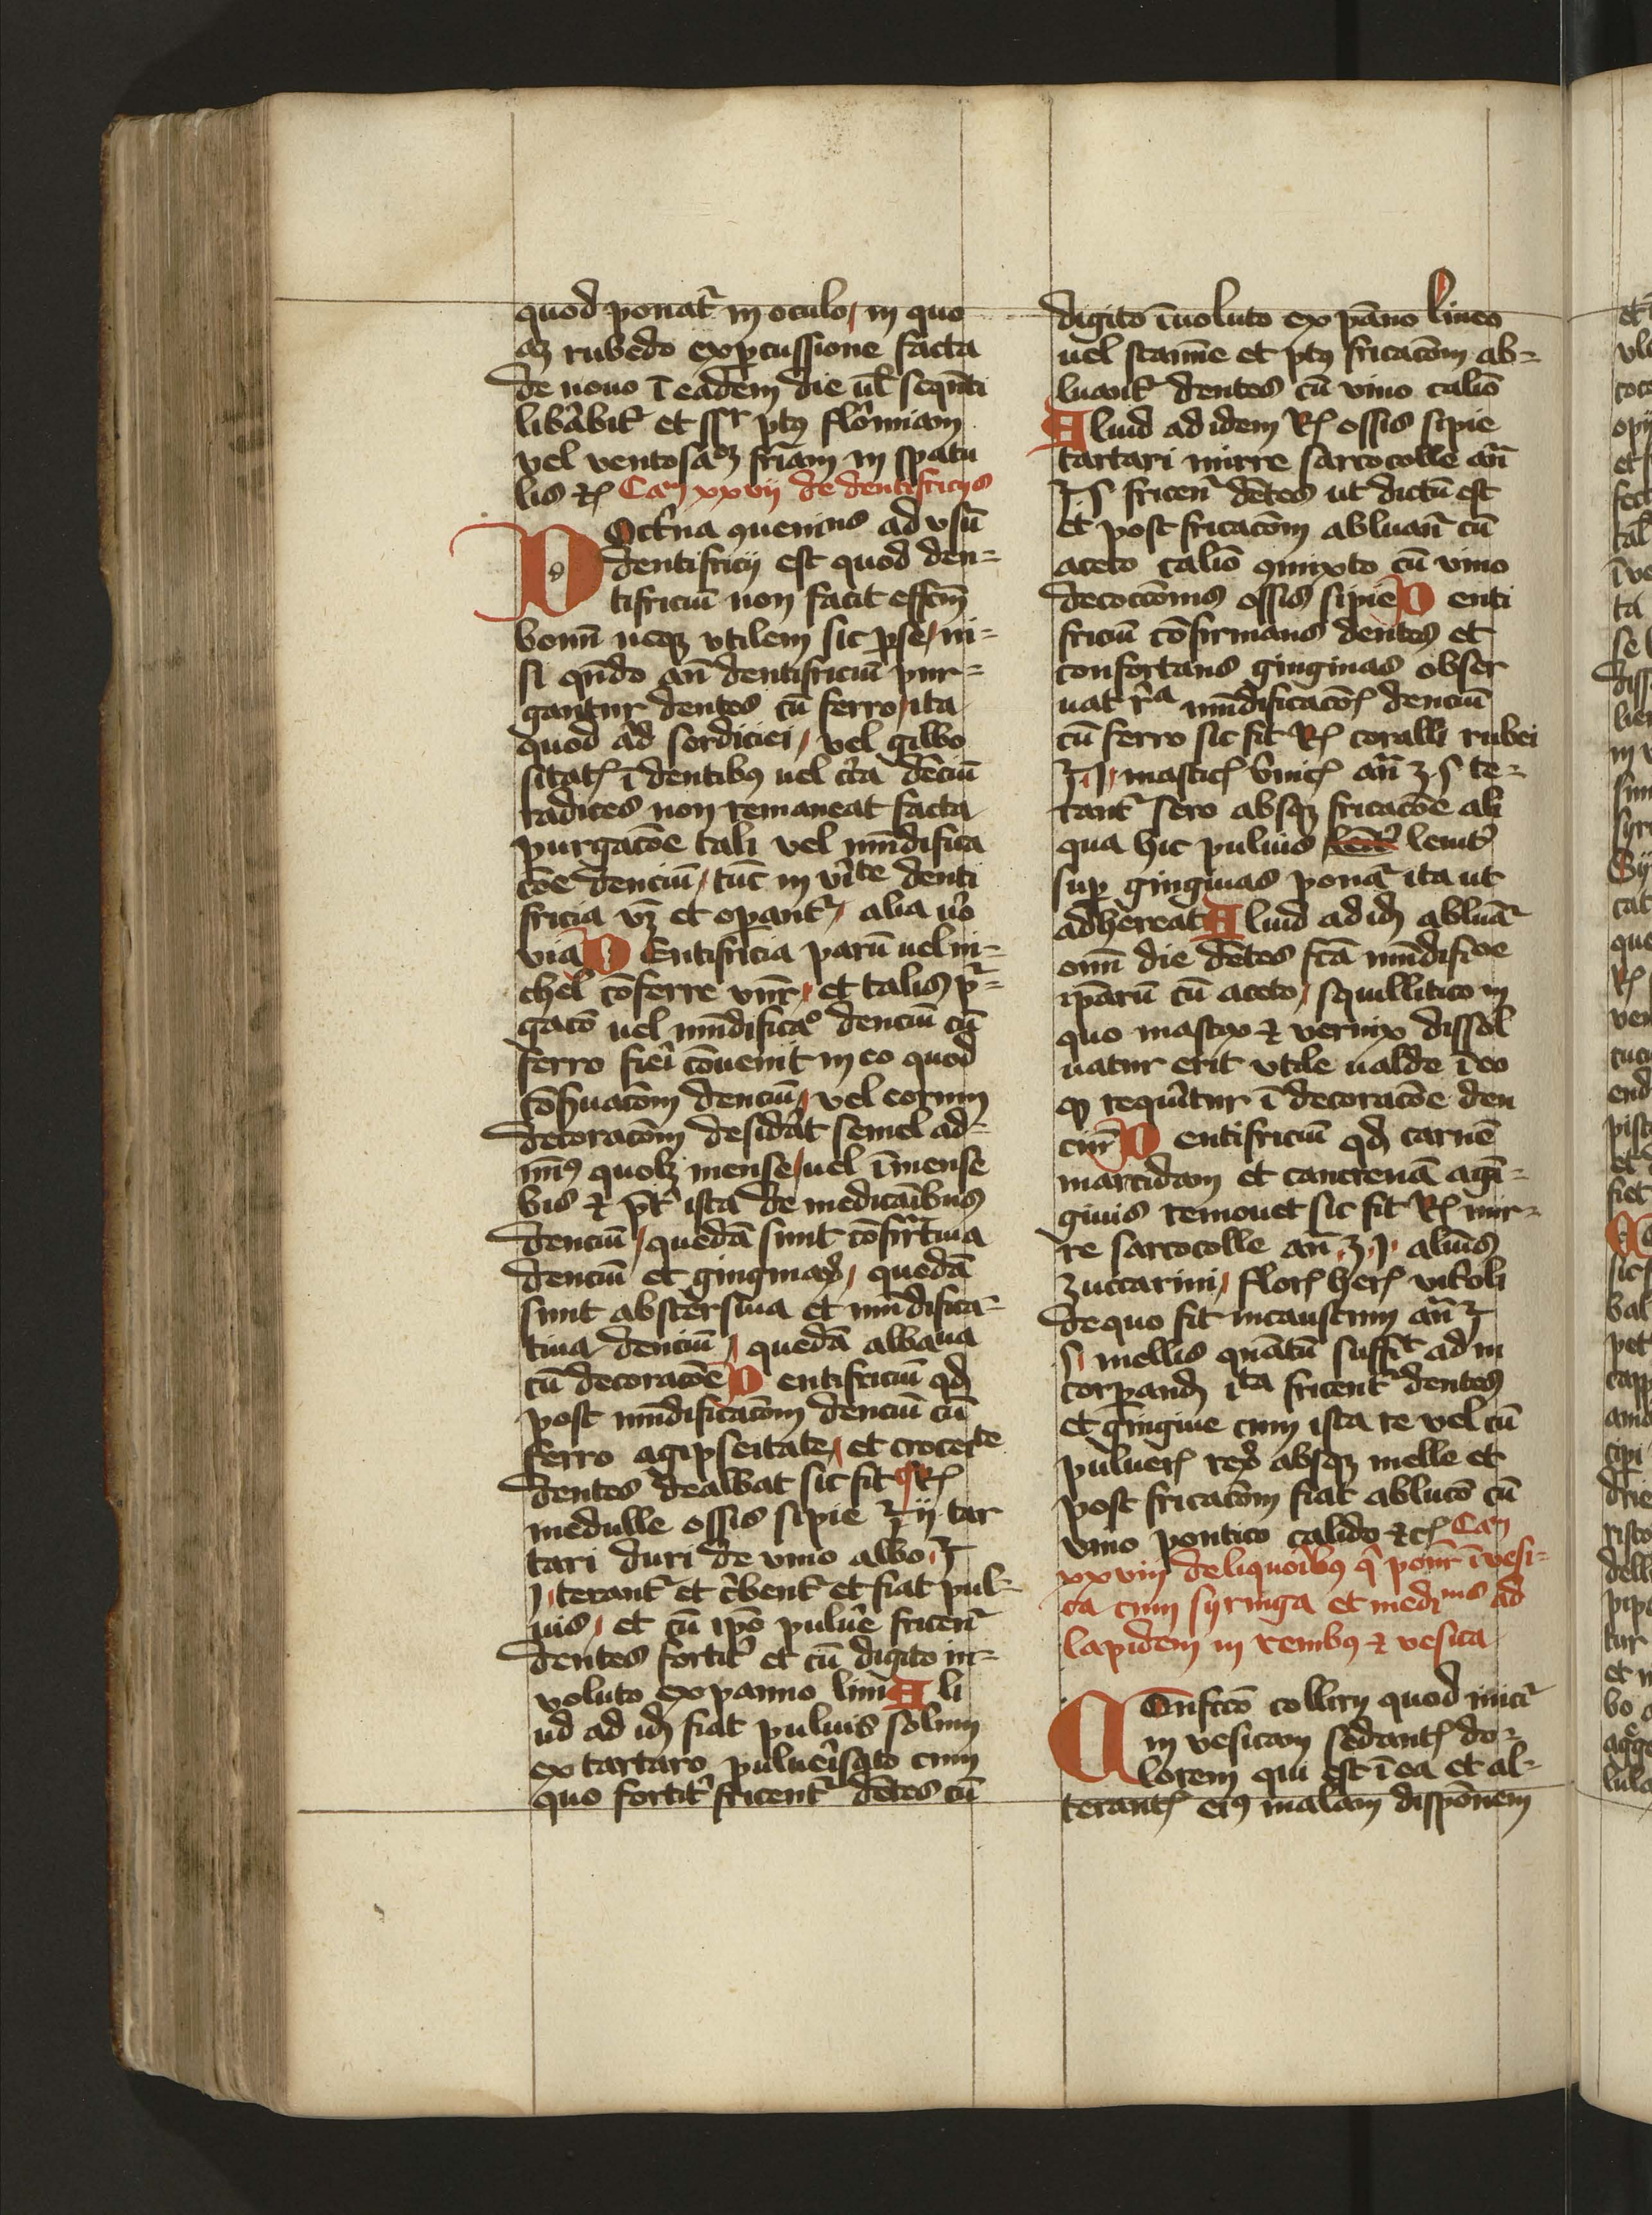 quod ponat᷑ in oculo / in quo
aȝ rubedo ex ꝑcussione facta
de nouo ī eadem die ul̄ sequēti
lib̾abit᷑ et ssr ptꝰ flo᷑miam
vel ventosaȝ fr̄iam in spatu
lis ⁊c̄ Cam xxvij de dentifricijs
DOct᷑na ꝯueniens ad vsū
dentifricij est quod den⸗
tifriciū non facit effcm̄
bonū neqꝫ vtilem sic ꝑ se / ni⸗
si qn̄do an̄ dentifriciū pur⸗
gantur dentes cū ferro / ita
quod ad sordiciei / vel gilbo
sitatꝭ ī dentibꝰ uel cr̄ca denciū
radices non remaneat facta
purgacōe tali vel mūdifica
cōe denciū / tūc in vi᷑te denti
fricia vȝ et operant᷑ / alia uo̾
via Dentifricia parū uel ni⸗
chel cōferre vn̄r / et talis pr̄⸗
gacō uel mūdificao denciū cū
ferro fiei᷑ cōuenit in eo quod
cōẜuacōm denciū / vel eorum
decoracōm desid̾at semel ad⸗
mīꝰ quolȝ mense / uel ī mense
bis ⁊ pt̄᷑ ista de medicāibus
denciū / quedā sunt cōfir̄tiua
denciū et gingiuaꝝ / quedā
sunt abstersiua et mūdifica⸗
tiua denciū / quedā albatiua
cū decoracōe Dentifriciū qd̄
post mūdificacōm denciū cū
ferro a gipseitate / et croceite
dentes dealbat sic fit ¶ ℞
medulle ossis sepie ℥ ij tar
tari duri de vino albo ℥
j / terant᷑ et c̾bent᷑ et fiat pul⸗
uis / et cū ip̄o pulue̾ fricen᷑
dentes fortit᷑ et cū digito in⸗
voluto ex panno lini Ali
ud ad id̄ fiat puluis solum
ex tartaro puluei᷑sato cum
quo fortit᷑ fricent᷑ dētes cū
digito īuoluto ex pāno lineo
uel stam̄e et ptꝰ fricacōm ab⸗
luant᷑ dentes cū vino calio
Aliud ad idem ℞ ossis sepie
tartari mirre sarcocolle an̄
℥ ſ fricen᷑ dētes ut dictū est
et post fricacōm abluan᷑ cū
aceto calio ꝯmixto cū vino
decoccōnis ossis sepie Denti
friciū cōfirmans dentes et
confortans gingiuas obser
uat ra mūdificacōꝭ denciū
cū ferro sic fit ℞ coralli rubei
℥ j / masticꝭ v̾nicꝭ an̄ ʒ ſ te⸗
rant᷑ sero absqꝫ fricacōe ali
qua hic puluis leuit᷑
suꝑ gingiuas ponat᷑ ita ut
adhereat Aliud ad id̄ abluā᷑
omī die dētes fcā mūdificōe
ip̄arū cū aceto / squillitico in
quo mastix ⁊ vernix dissol
uatur erit vtile ualde ī eo
qȝ requi᷑tur ī decoracōe den
ciū Dentifriciū qd̄ carnē
marcidam et cancrenā a gī⸗
giuis remouet sic fit ℞ mir⸗
re sarcocolle an̄ ʒ j / alum̄s
zuccarini / florꝭ herꝭ vit᷑oli
de quo fit incaustrum an̄ ℥
ſ / mellis quātū suffit᷑ ad in
corꝑand̄ ita fricent᷑ dentes
et gingiue cum ista re vel cū
pulue̾ꝭ reꝝ absqꝫ melle et
post fricacōm fiat ablucō cū
vino pontico calido ⁊cꝭ Cam
xxviij de liquoi᷑bꝰ q̄ ponūr ī vesi⸗
ca cum syringa et medinis ad
lapidem in renibꝰ ⁊ vesica
COnfeccō collirij quod inici᷑
in vesicam sedantꝭ do⸗
lorem qui est ī ea et al⸗
terantꝭ eiꝰ malam dispōnem